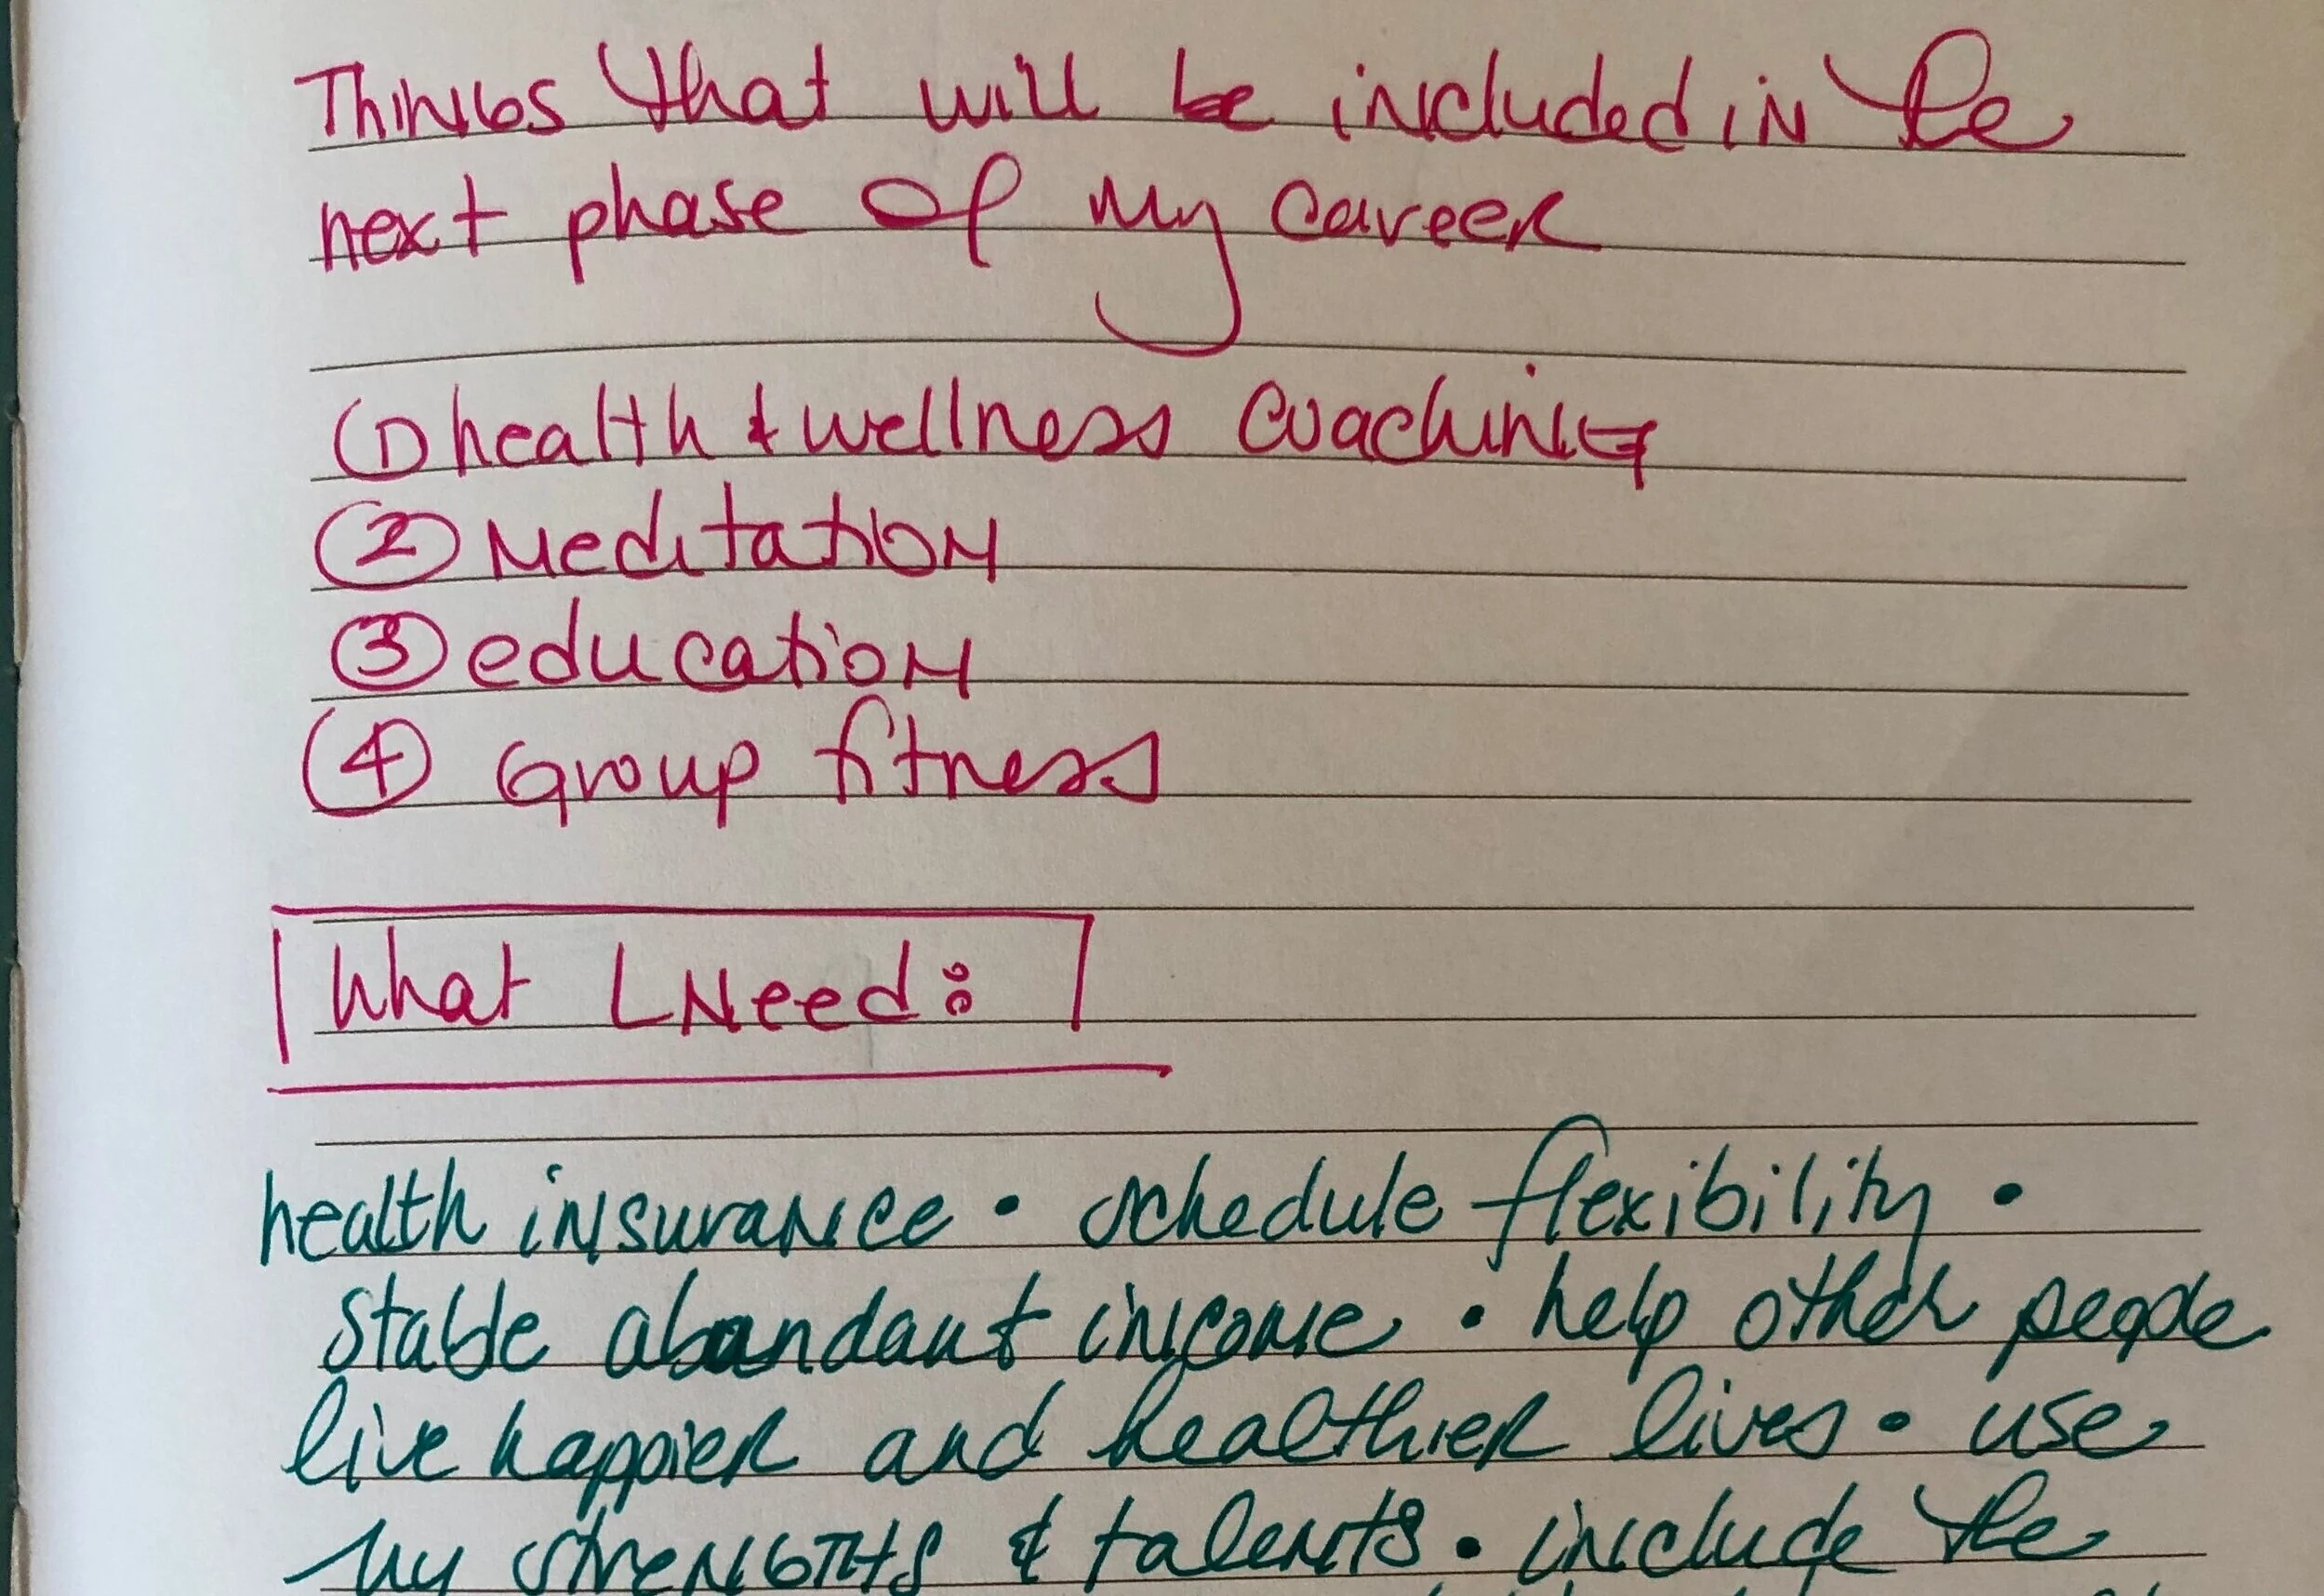 Things that will be included in the
next phase of my career
① health & wellness coaching
② Meditation
③ education
④ Group fitness
What I Need:
health insurance • schedule flexibility •
stable abundant income • help other people
live happier and healthier lives • use
my strengths & talents • include the